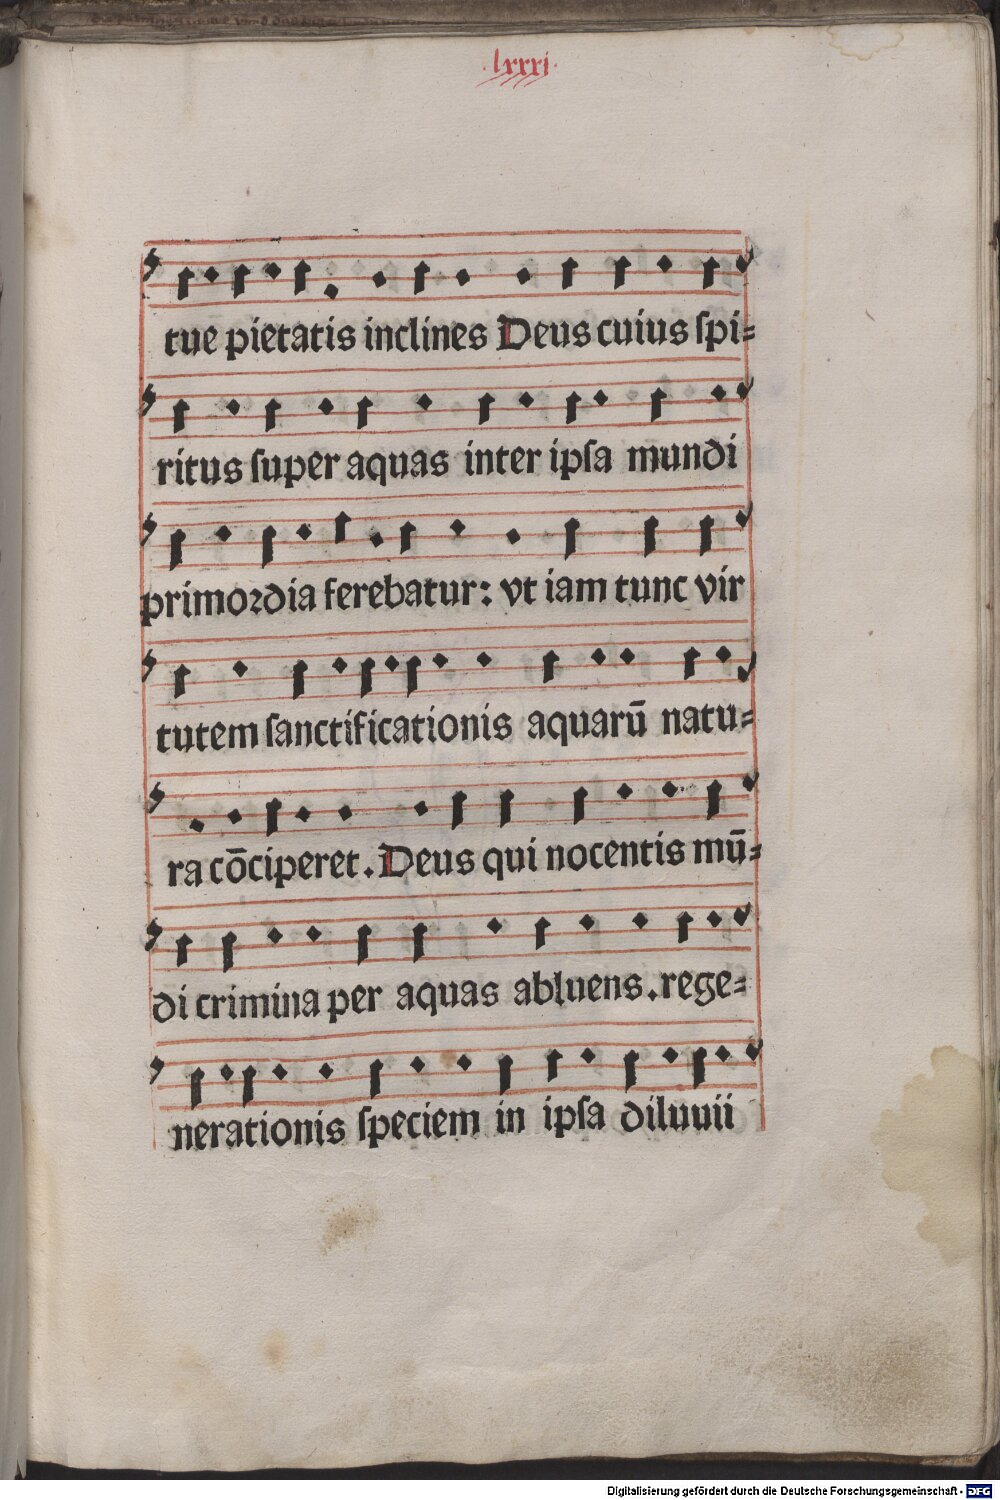 ·lxxxi·
tue pietatis inclines Deus cuius ſpi=
ritus ſuper aquas inter ipſa mundi
primordia ferebatur: vt iam tunc vir
tutem ſanctificationis aquarū natu=
ra cōciperet. Deus qui nocentis mū=
di crimina per aquas abluens. rege=
nerationis ſpeciem in ipſa diluuii
Digitalisierung gefördert durch die Deutsche Forschungsgemeinschaft - DFG